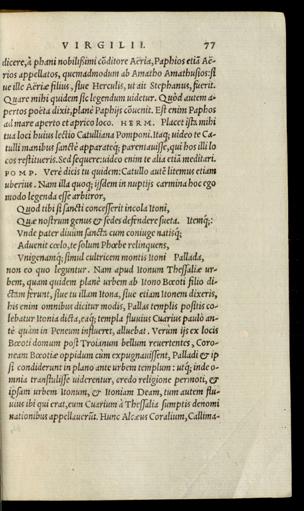 VIRGILII. 77
dicere, à phani nobilißimi cõditore Aëria, Paphios etiã Aë-
rios appellatos, quemadmodum ab Amatho Amathusios: si
ue ille Aëriæ filius, siue Herculis, ut ait Stephanus, fuerit.
Quare mihi quidem sic legendum uidetur. Quòd autem a-
pertos poëta dixit, planè Paphijs cõuenit. Est enim Paphos
ad mare aperto et aprico loco. HERM. Placet ista mihi
tua loci huius lectio Catulliana Pomponi. Itaq; uideo te Ca-
tulli manibus sanctè apparateq; parentauisse, qui hos illi lo
cos restitueris. Sed sequere: uideo enim te alia etiã meditari.
POMP. Verè dicis tu quidem: Catullo autẽ litemus etiam
uberius. Nam illa quoq; ijsdem in nuptijs carmina hoc ego
modo legenda esse arbitror,
Quod tibi si sancti concesserit incola Itoni,
Quæ nostrum genus & sedes defendere sueta. Itemq;:
Vnde pater diuûm sancta cum coniuge natisq;
Aduenit cœlo, te solum Phœbe relinquens,
Vnigenamq; simul cultricem montis Itoni Pallada,
non eo quo leguntur. Nam apud Itonum Thessaliæ ur-
bem, quam quidem planè urbem ab Itono Bœoti filio di-
ctam ferunt, siue tu illam Itona, siue etiam Itonem dixeris,
his enim omnibus dicitur modis, Pallas templis positis co-
lebatur Itonia dicta, eaq; templa fluuius Cuarius paulò an-
tè quàm in Peneum influeret, alluebat. Verùm ijs ex locis
Bœoti domum post Troianum bellum reuertentes, Coro-
neam Bœotiæ oppidum cùm expugnauissent, Palladi & ip
si condiderunt in plano ante urbem templum: utq; inde o-
mnia transtulisse uiderentur, credo religione permoti, &
ipsam urbem Itonum, & Itoniam Deam, tum autem flu-
uius ibi qui erat, eum Cuarium à Thessalia sumptis denomi
nationibus appellauerũt. Hunc Alcæus Coralium, Callima-